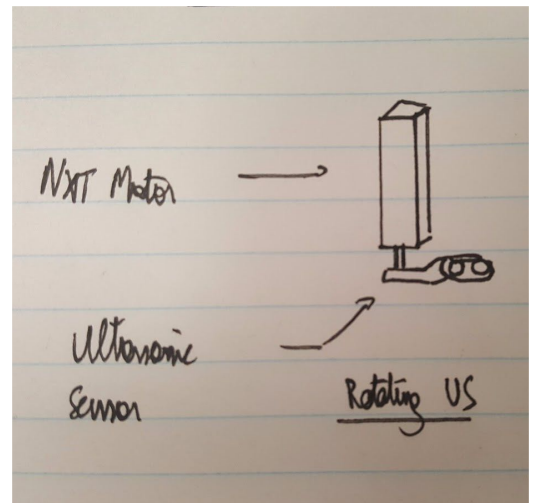 NXT Motor
Ultrasonic
Sensor
Rotating US